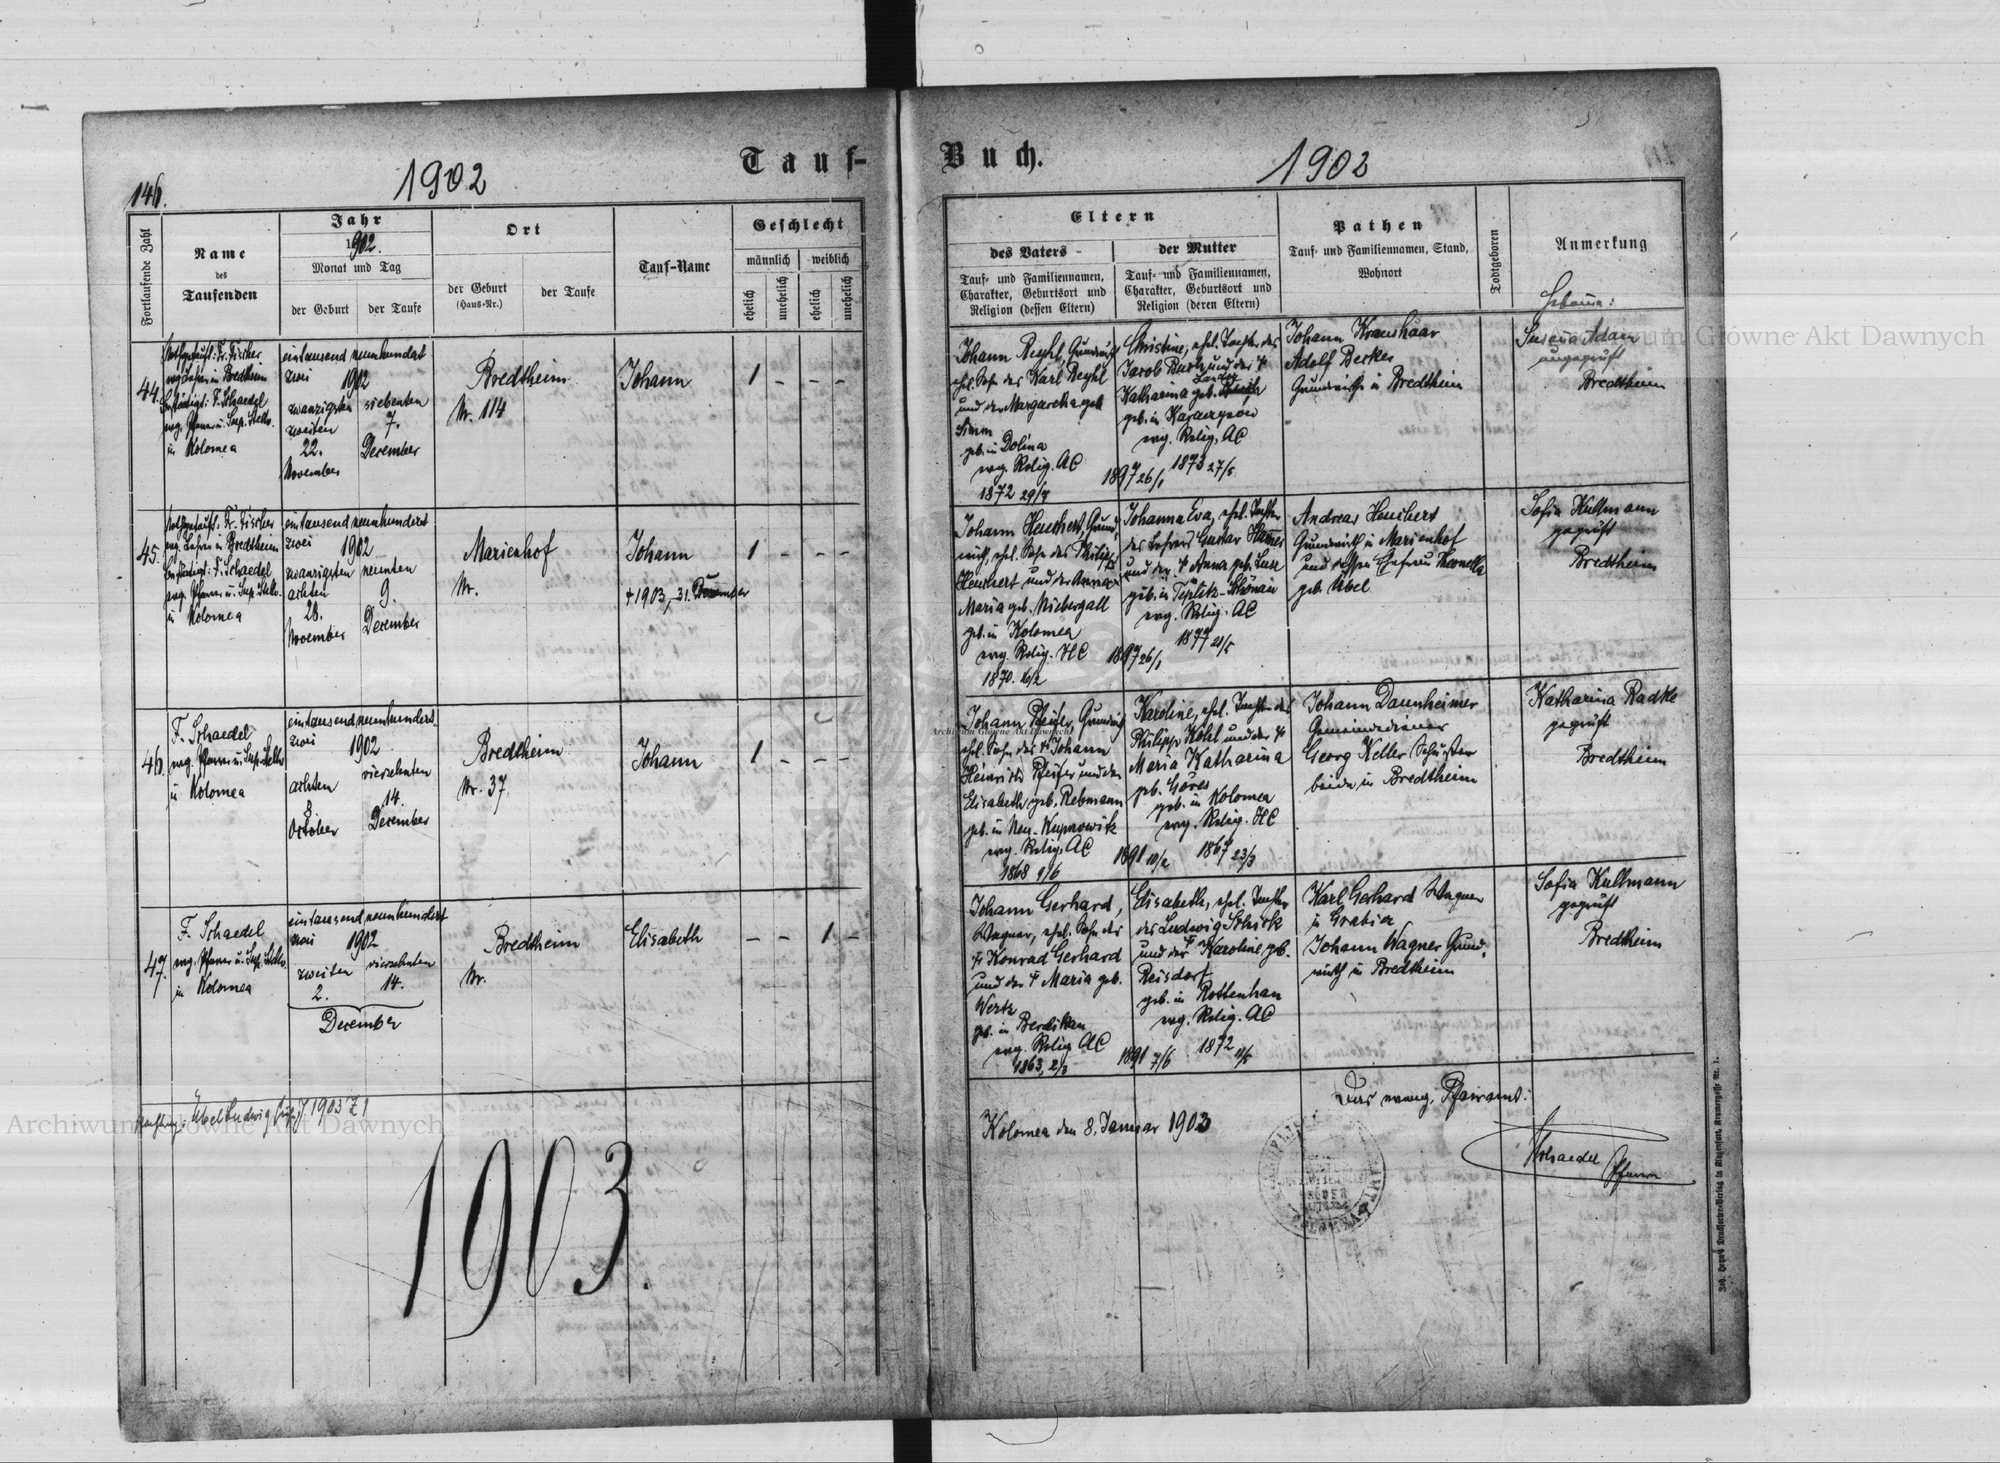 146.
1902
Tauf-
Fortlaufende Zahl
Name
des
Taufenden
Jahr
1902.
Monat und Tag
der Geburt
der Taufe
Ort
der Geburt
(Haus-Nr.)
der Taufe
Tauf-Name
Geschlecht
männlich
weiblich
ehelich
unehelich
ehelich
unehelich
44.
Nothgetauft: Fr. Fischer
evg. Lehrer in Bredtheim
Bestätigt: F. Schaedel
evg. Pfarrer u. Sup. Stellv.
in Kolomea
eintausend neunhundert
zwei 1902
zwanzigsten siebenten
zweiten 7.
22. December
November
Bredtheim
Nr. 114
Johann
1 - - -
45.
Nothgetauft: Fr. Fischer
evg. Lehrer in Bredtheim
Bestätigt: F. Schaedel
evg. Pfarrer u. Sup. Stellv.
in Kolomea
eintausend neunhundert
zwei 1902
zwanzigsten neunten
achten 9.
28. December
November
Marienhof
Nr.
Johann
† 1903, 31. Dezember
1 - - -
46.
F. Schaedel
evg. Pfarrer u. Sup. Stellv.
in Kolomea
eintausend neunhundert
zwei 1902
achten vierzehnten
8 14.
October December
Bredtheim
Nr. 37.
Johann
1 - - -
47.
F. Schaedel
evg. Pfarrer u. Sup. Stellv.
in Kolomea
eintausend neunhundert
zwei 1902
zweiten vierzehnten
2. 14.
December
Bredtheim
Nr.
Elisabeth
- - 1 -
Nachtrag: Abel Ludwig J. 1903 Z 1
1903.
Buch.
1902
Eltern
des Vaters
Tauf- und Familiennamen,
Charakter, Geburtsort und
Religion (dessen Eltern)
der Mutter
Tauf- und Familiennamen,
Charakter, Geburtsort und
Religion (deren Eltern)
Pathen
Tauf- und Familiennamen, Stand,
Wohnort
Todtgeboren
Anmerkung
Hebamme:
Johann Reyhl, Grundwirth
ehel. Sohn des Karl Reyhl
und der Margaretha geb.
Simm
geb. in Dolina
evg. Relig. AC
1872 29/7
Christine, ehel. Tochter des
Jacob Bach und der †
Katharina geb.
geb. in Karaczynow
evg. Relig. AC
1897 26/1 1873 27/5
Johann Kraushaar
Adolf Becker
Grundwirthe in Bredtheim
Susana Adam
ungeprüft
Bredtheim
Johann Heuchert, Grund-
wirth, ehel. Sohn des Philipp
Heuchert und der Anna
Maria geb. Niebergall
geb. in Kolomea
evg. Relig. HC
1870. 16/2
Johanna Eva, ehel. Tochter
des Lehrers Gustav Hammer
und der † Anna geb.
geb. in Teplitz-Schönau
evg. Relig. AC
1897 26/1 1877 21/5
Andreas Heuchert
Grundwirth in Marienhof
und dessen Ehefrau
geb. Abel
Sofia Kullmann
geprüft
Bredtheim
Johann Pfeifer, Grundwirth
ehel. Sohn des † Johann
Heinrich Pfeifer und der
Elisabeth geb. Rebmann
geb. in Neu-Kupnowitz
evg. Relig. AC
1868 9/6
Karoline, ehel. Tochter des
Philipp Kohl und der †
Maria Katharina
geb. Göres
geb. in Kolomea
evg. Relig. HC
1891 10/2 1867 23/3
Johann Daunheimer
Gemeindediener
Georg Keller Schuster
beide in Bredtheim
Katharina Radke
geprüft
Bredtheim
Johann Gerhard,
Wagner, ehel. Sohn des
† Konrad Gerhard
und der † Maria geb.
Wertz
geb. in Berdikau
evg. Relig. AC
1863, 2/3
Elisabeth, ehel. Tochter
des Ludwig Schick
und der † Karoline geb.
Reisdorf
geb. in Rottenhan
evg. Relig. AC
1891 7/6 1872 11/5
Karl Gerhard Wagner
in Grabicz
Johann Wagner Grund-
wirth in Bredtheim
Sofia Kullmann
geprüft
Bredtheim
Kolomea den 8. Januar 1903
Das evang. Pfarramt:
Schaedel
Pfarrer
Joh. Heyn's Druckerei-Verlag in Klagenfurt, Kramergasse Nr. 1.
Archiwum Główne Akt Dawnych
Archiwum Główne Akt Dawnych
Archiwum Główne Akt Dawnych